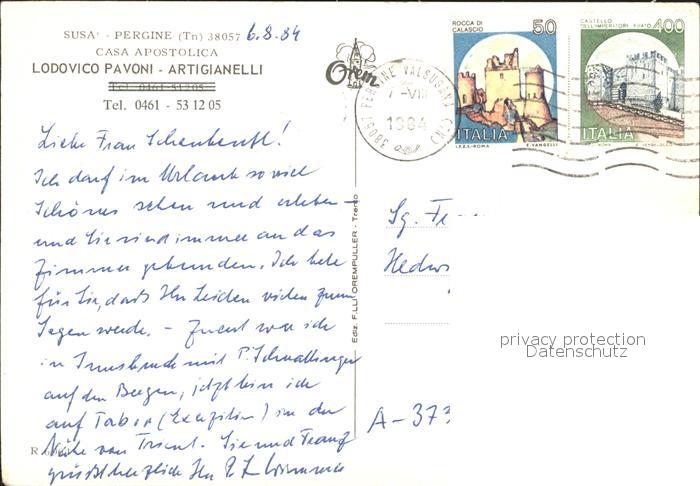 SUSA' - PERGINE (Tn) 38057 6.8.84
CASA APOSTOLICA
LODOVICO PAVONI - ARTIGIANELLI
Tel. 0461 - 51205
Tel. 0461 - 53 12 05
Liebe Frau
Ich darf im Urlaub so viel
Schönes sehen und erleben –
und Sie sind immer an das
Zimmer gebunden. Ich bete
für Sie, dass Ihr Leiden vielen zum
Segen werde. – Zuerst war ich
in Innsbruck mit P.
auf den Bergen, jetzt bin ich
auf Tabor (Exerzitien) in der
Nähe von Trient. Sie und Franz
grüßt herzlich Ihr P.
Orem
Ediz. F.LLI OREMPULLER - Trento
38057 PERGINE VALSUGANA (TN)
-VIII
1984
ROCCA DI
CALASCIO
50
ITALIA
I.P.Z.S.-ROMA E. VANGELLI
CASTELLO
DELL'IMPERATORE PRATO
400
ITALIA
ROMA
Sg. Fr
Hedwi
A-373
privacy protection
Datenschutz